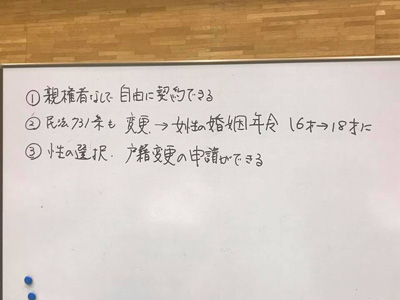 ①親権者なしで 自由に契約できる
②民法731条も 変更→女性の婚姻年令 16才→18才に
③性の選択、戸籍変更の申請ができる